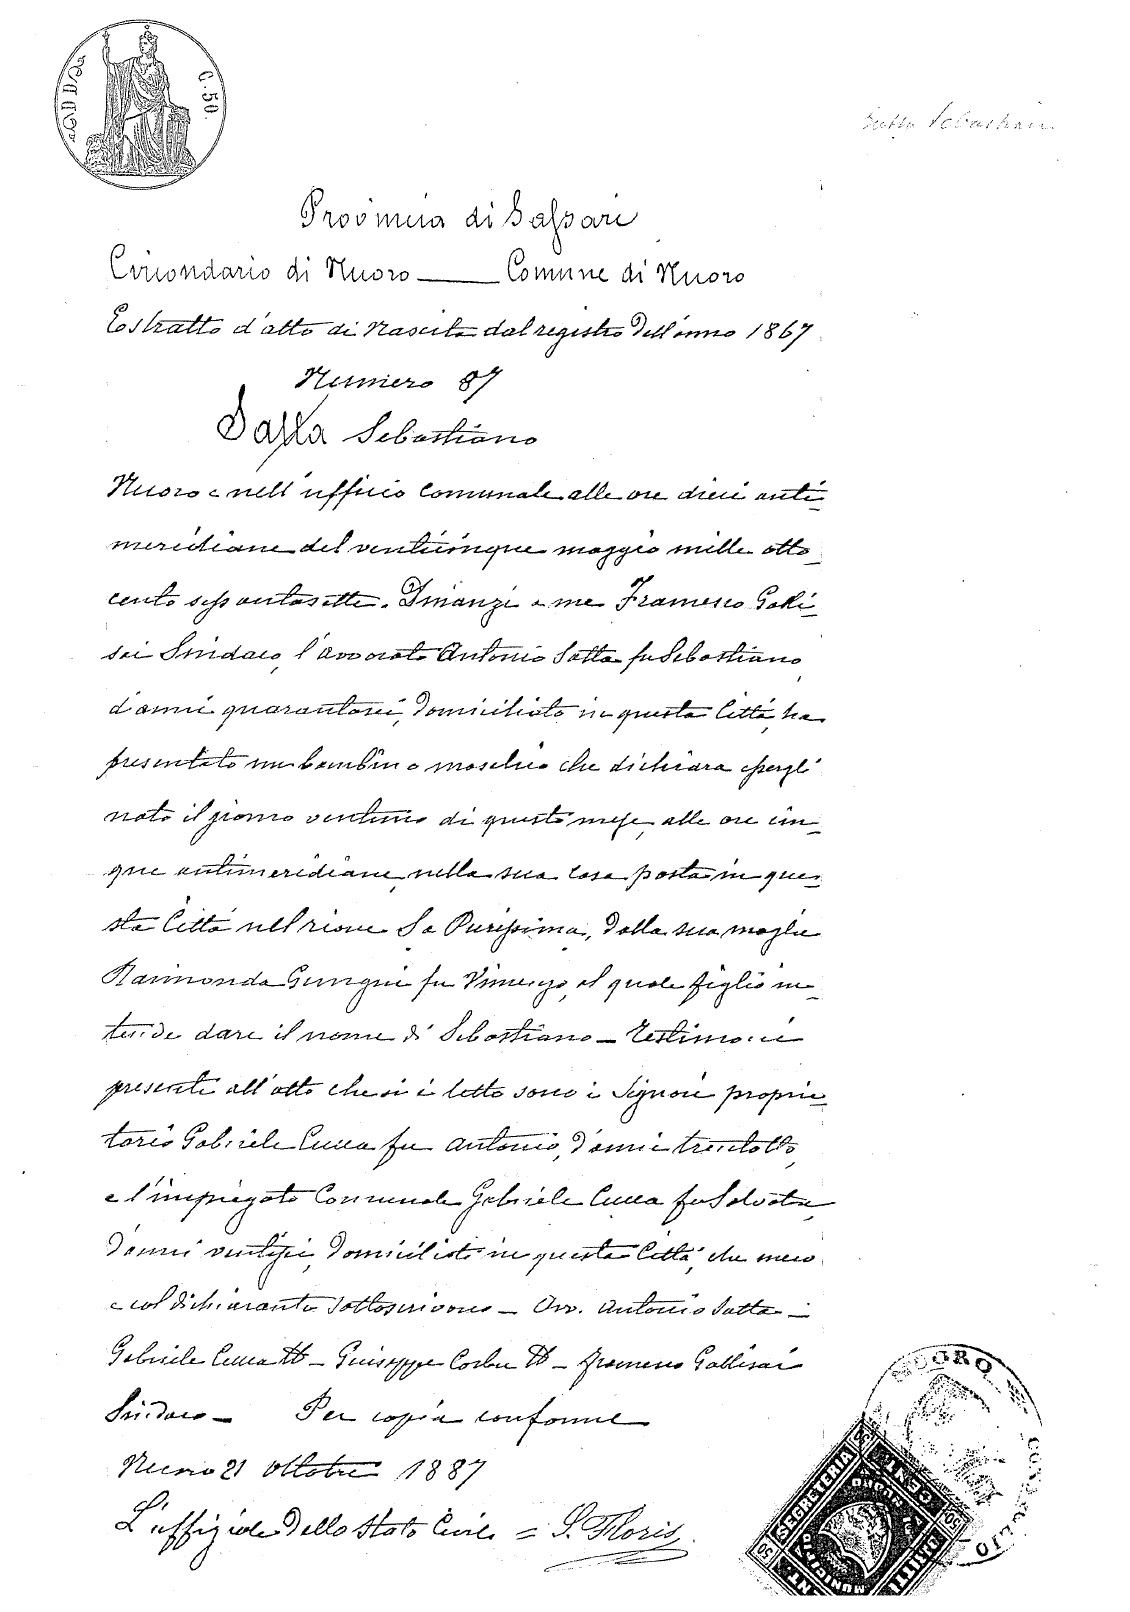 C. 50.
Satta Sebastian
Provincia di Sassari
Circondario di Nuoro — Comune di Nuoro
Estratto d'atto di Nascita dal registro dell'anno 1867
Numero 87
Satta Sebastiano
Nuoro e nell'ufficio Comunale alle ore dieci anti-
meridiane del venticinque maggio mille otto-
cento sessantasette. Dinanzi a me Francesco Galli-
sai Sindaco, l'avvocato Antonio Satta fu Sebastiano
d'anni quarantasei, domiciliato in questa Città, ha
presentato un bambino maschio che dichiara essergli
nato il giorno ventuno di questo mese, alle ore cin-
que antimeridiane, nella sua casa posta in que-
sta Città nel rione Sa Purissima, dalla sua moglie
Raimonda Gungui fu Vincenzo, al quale figlio in-
tende dare il nome di Sebastiano — Testimoni
presenti all'atto che si è letto sono i Signori proprie-
tario Gabriele Cucca fu Antonio, d'anni trentotto,
e l'impiegato Comunale Gabriele Cucca fu Salvatore,
d'anni ventisei, domiciliati in questa Città, che meco
e col dichiarante sottoscrivono — Avv. Antonio Satta —
Gabriele Cucca Tt — Giuseppe Corbu Tt — Francesco Gallisai
Sindaco — Per copia conforme
Nuoro 21 Ottobre 1887
L'uffiziale dello Stato Civile = S. Floris
NUORO
SEGRETERIA
CENT. 50
MUNICIPIO DI NUORO
DIRITTI
50